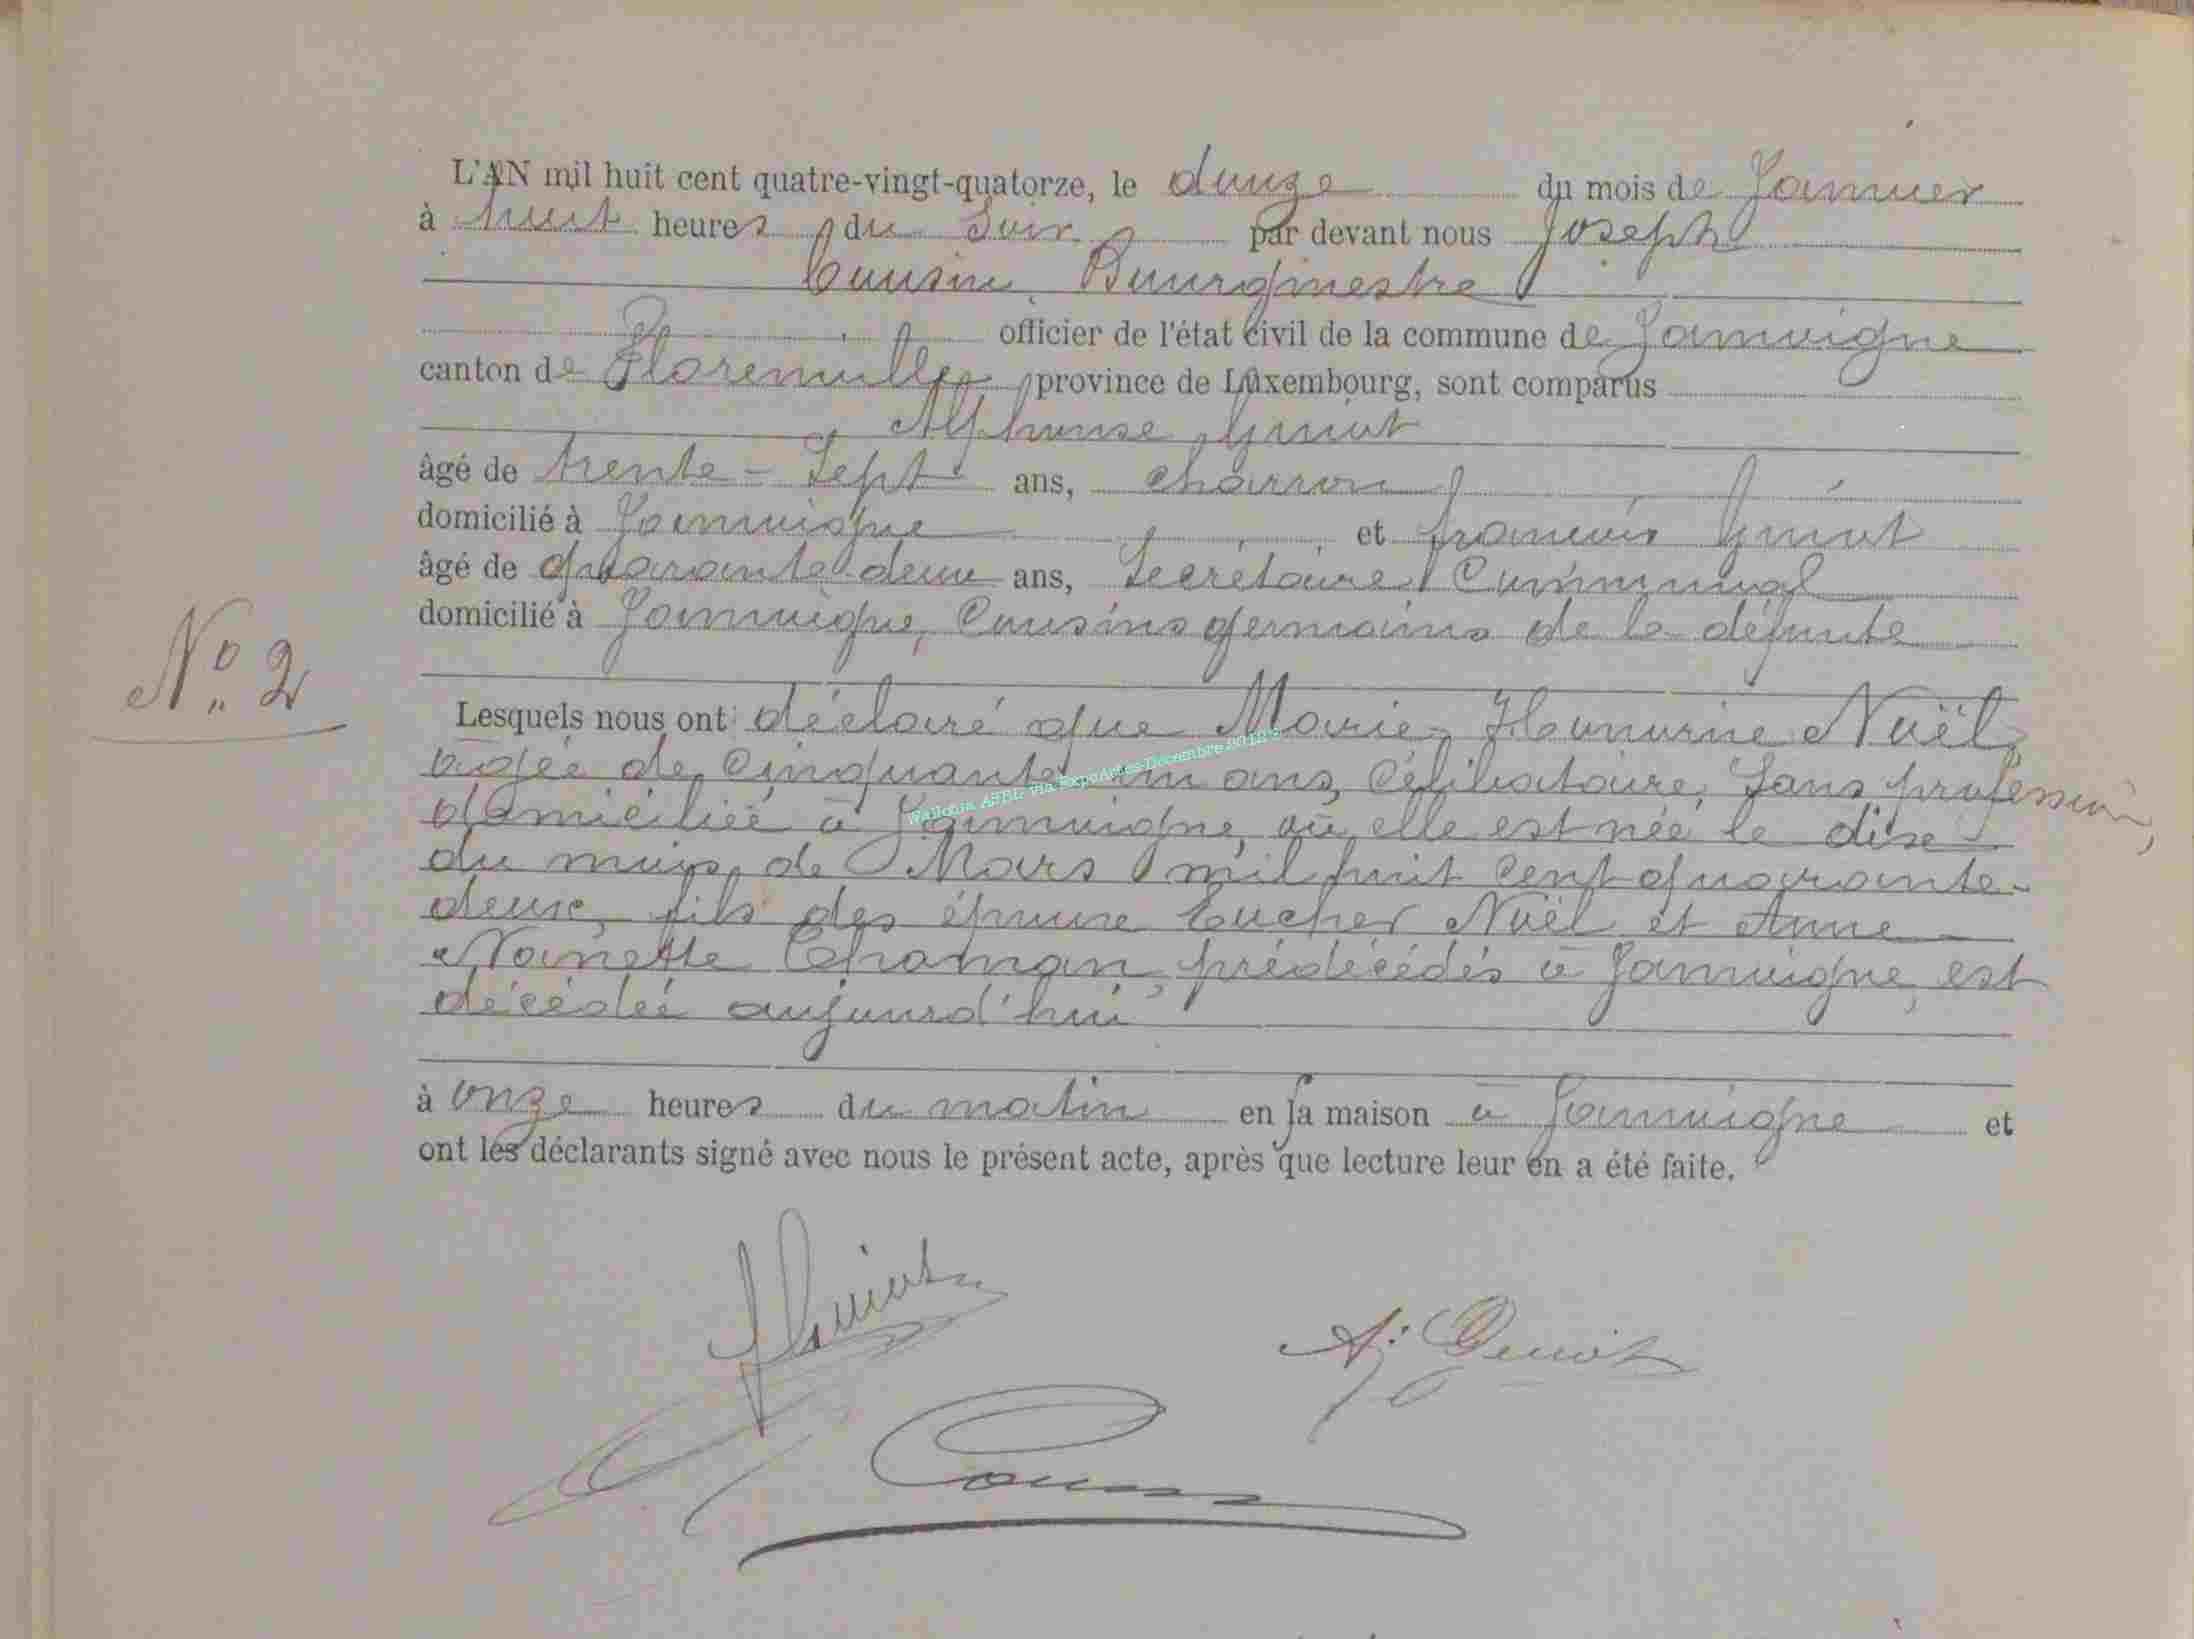 L'AN mil huit cent quatre-vingt-quatorze, le douze du mois de Janvier
à huit heures du soir par devant nous Joseph
Cousin, Bourgmestre
officier de l'état civil de la commune de Jamoigne
canton de Florenville, province de Luxembourg, sont comparus
Alphonse Guiot
âgé de trente-sept ans, charron
domicilié à Jamoigne et françois Guiot
âgé de quarante-deux ans, Secrétaire Communal
domicilié à Jamoigne, Cousins germains de la défunte
N° 2
Lesquels nous ont déclaré que Marie Honorine Noël,
agée de Cinquante un ans, Célibataire, Sans profession,
domiciliée à Jamoigne, où elle est née le dix
du mois de Mars mil huit Cent quarante-
deux, fils des époux Eucher Noël et Anne
Nanette, prédécédés à Jamoigne, est
décédée aujourd'hui
à onze heures du matin en sa maison à Jamoigne et
ont les déclarants signé avec nous le présent acte, après que lecture leur en a été faite.
Guiot
A. Guiot
Cousin
Wallonia ASBL via ExpoActes-Decembre 2018